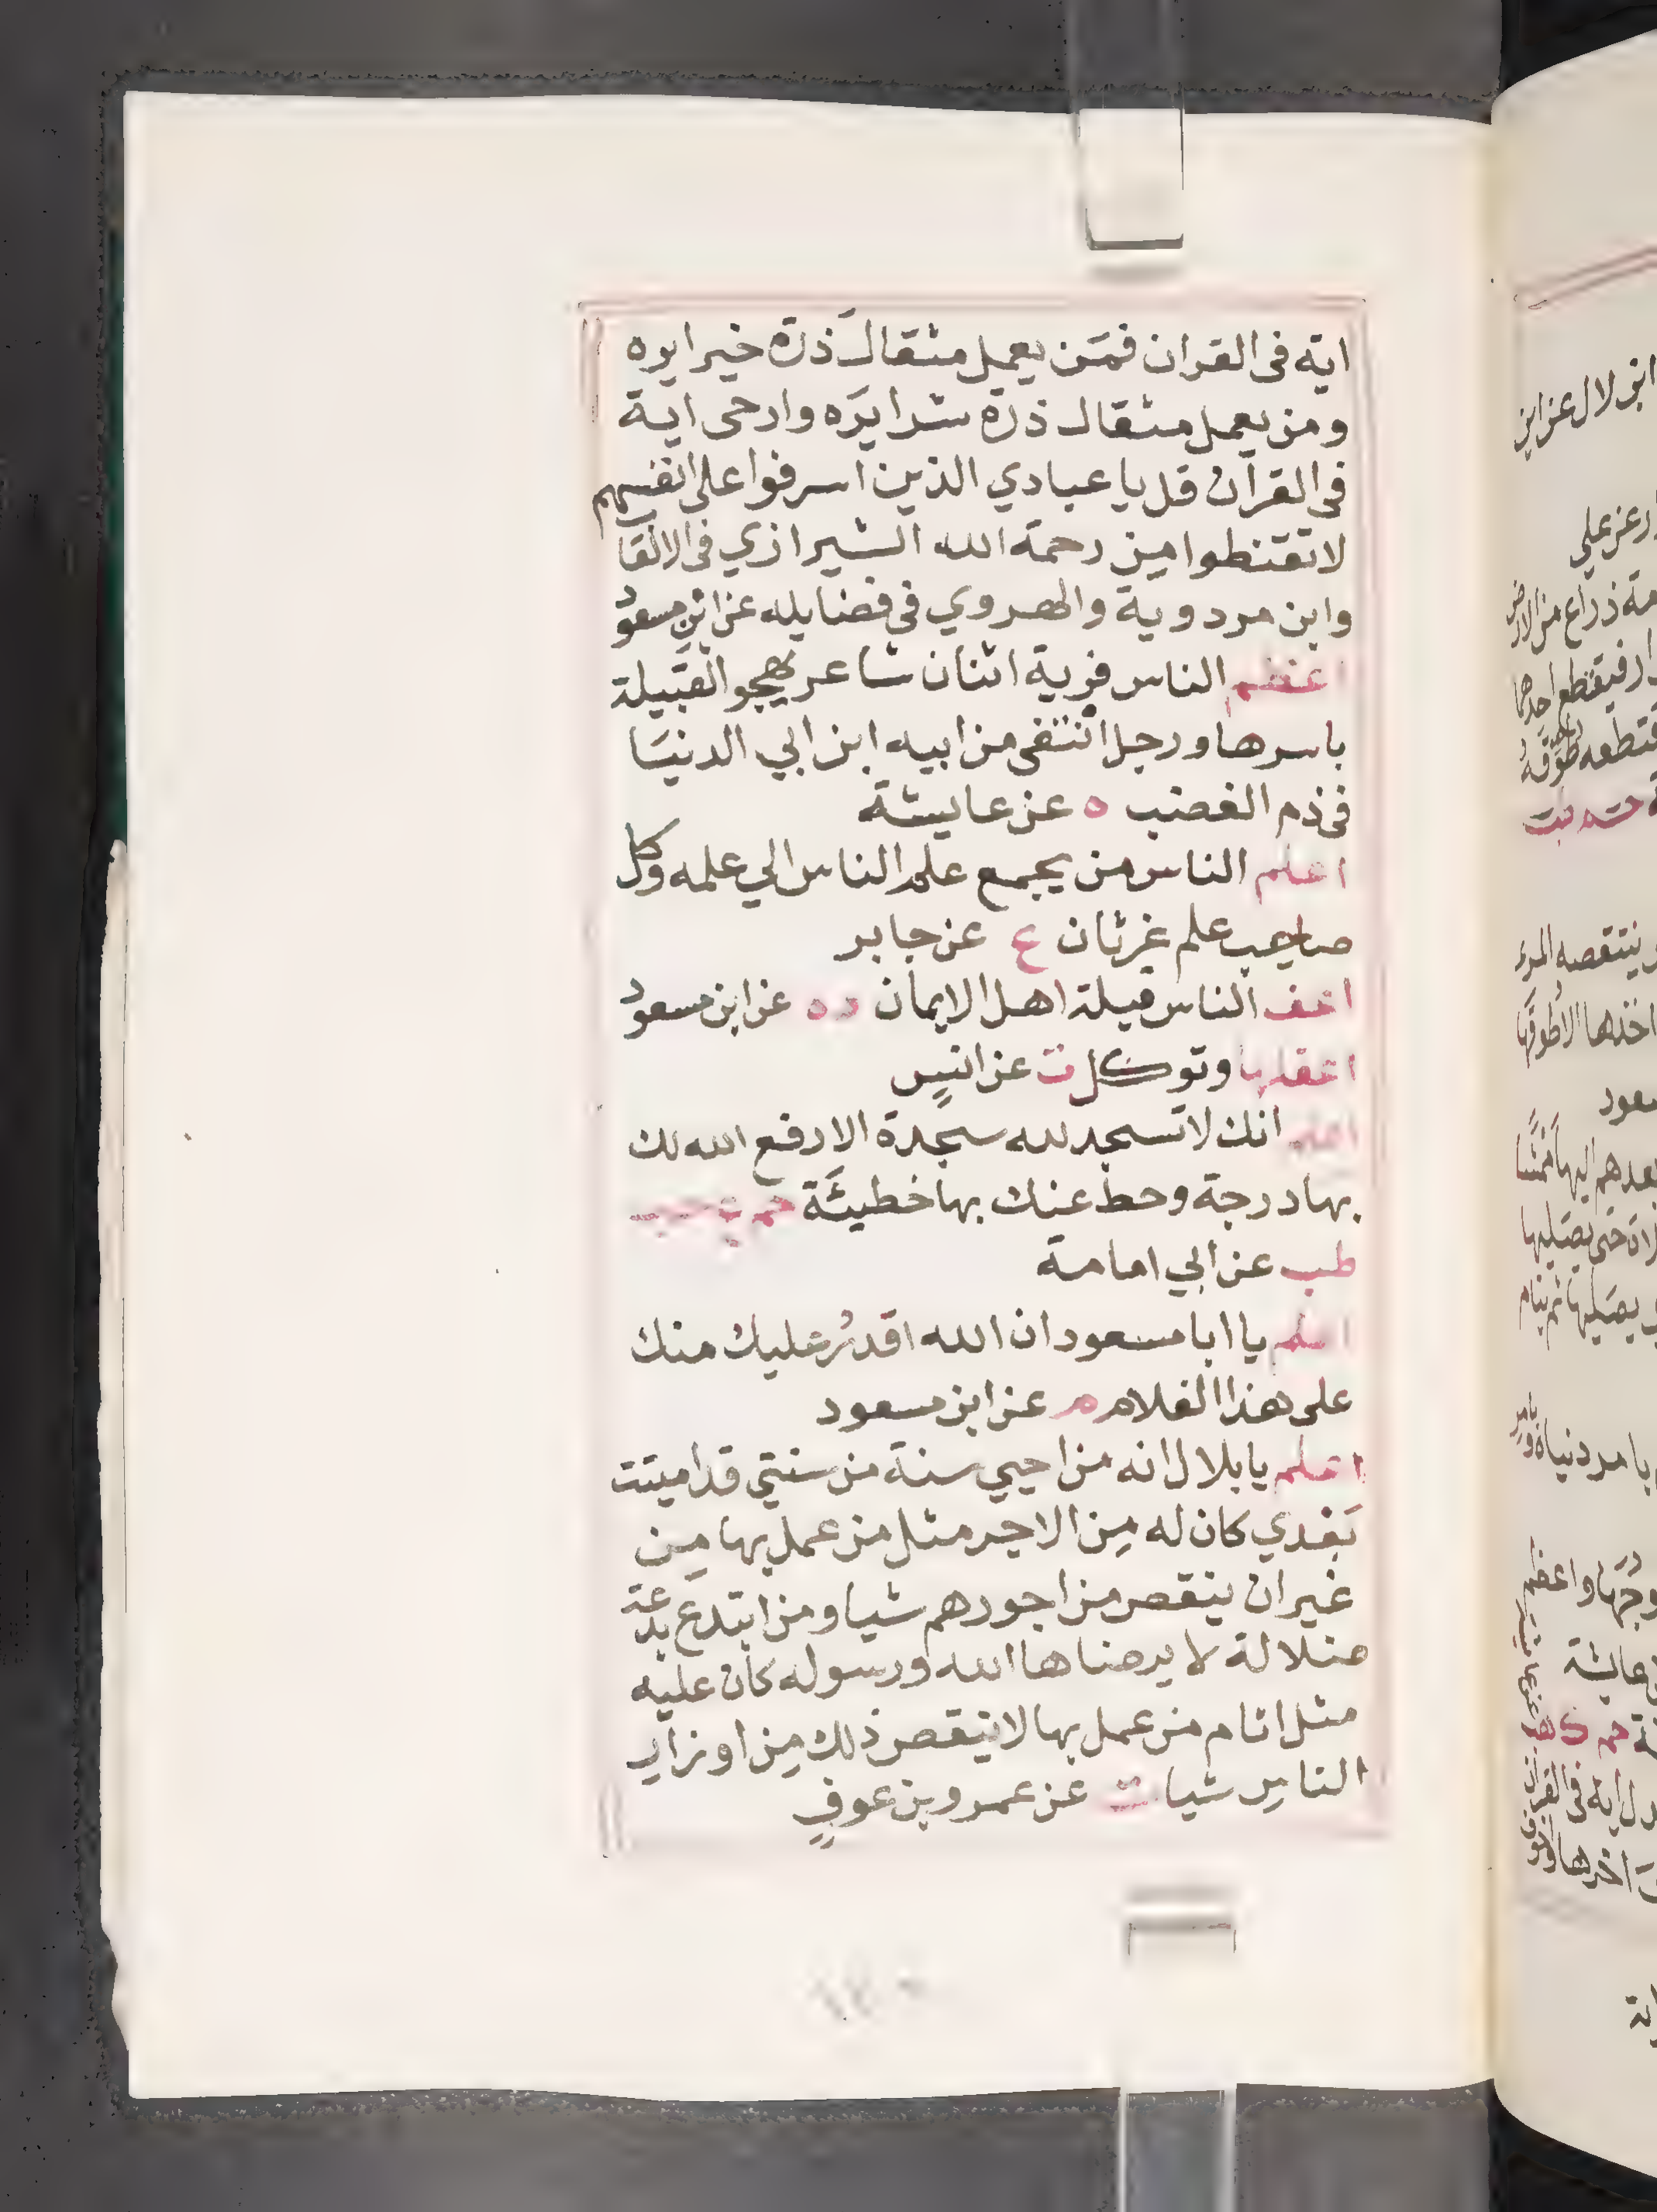 اية فى القران فمَن يعمل مثقالَ ذرة خيرا يره
ومن يعمل مثقال ذرة شرا يَره وارجى اية
فى القرآن قل يا عبادي الذين اسرفوا على انفسهم
لا تقنطوا من رحمة الله الشيرازي فى الالقاب
وابن مردوية والهروي فى فضايله عن ابن مسعود
اعظم الناس فرية اثنان شاعر يهجو القبيلة
باسرها ورجل انتفى من ابيه ابن ابي الدنيَا
فى ذم الغضب ه عن عايشة
اعلم الناس من يجمع علم الناس الي علمه وكل
صاحب علم غرثان ع عن جابر
اعف الناس قيلة اهل الايمان د ه عن ابن مسعود
اعقلها وتوكل ت عن انسٍ
اعلم انك لا تسجد لله سجدة الا رفع الله لك
بها درجة وحط عنك بها خطيئَة حم ع حب
طب عن ابي امامة
اعلم يا ابا مسعود ان الله اقدرُ عليك منك
على هذا الغلام م عن ابن مسعود
اعلم يا بلال انه من احيي سنة من سنتي قد اميتت
بَعدي كان له مِن الاجر مثل من عمل بها مِن
غير ان ينقص من اجورهم شيا ومن ابتدَع بدعة
ضلالة لا يرضاها الله ورسوله كان عليه
مثل اثام من عمل بها لا ينقص ذلك مِن اوزارِ
الناسِ شيا ت عن عمرو بن عوفٍ